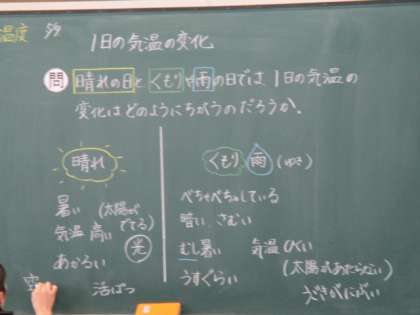 温度 5/9
1日の気温の変化
問 晴れの日とくもりや雨の日では、1日の気温の
変化はどのようにちがうのだろうか。
晴れ
暑い (太陽が
気温 高い でてる)
光
あかるい
活ぱつ
くもり 雨 (ゆき)
べちゃべちゃしている
暗い、さむい
むし暑い 気温 ひくい
(太陽があたらない)
うすぐらい